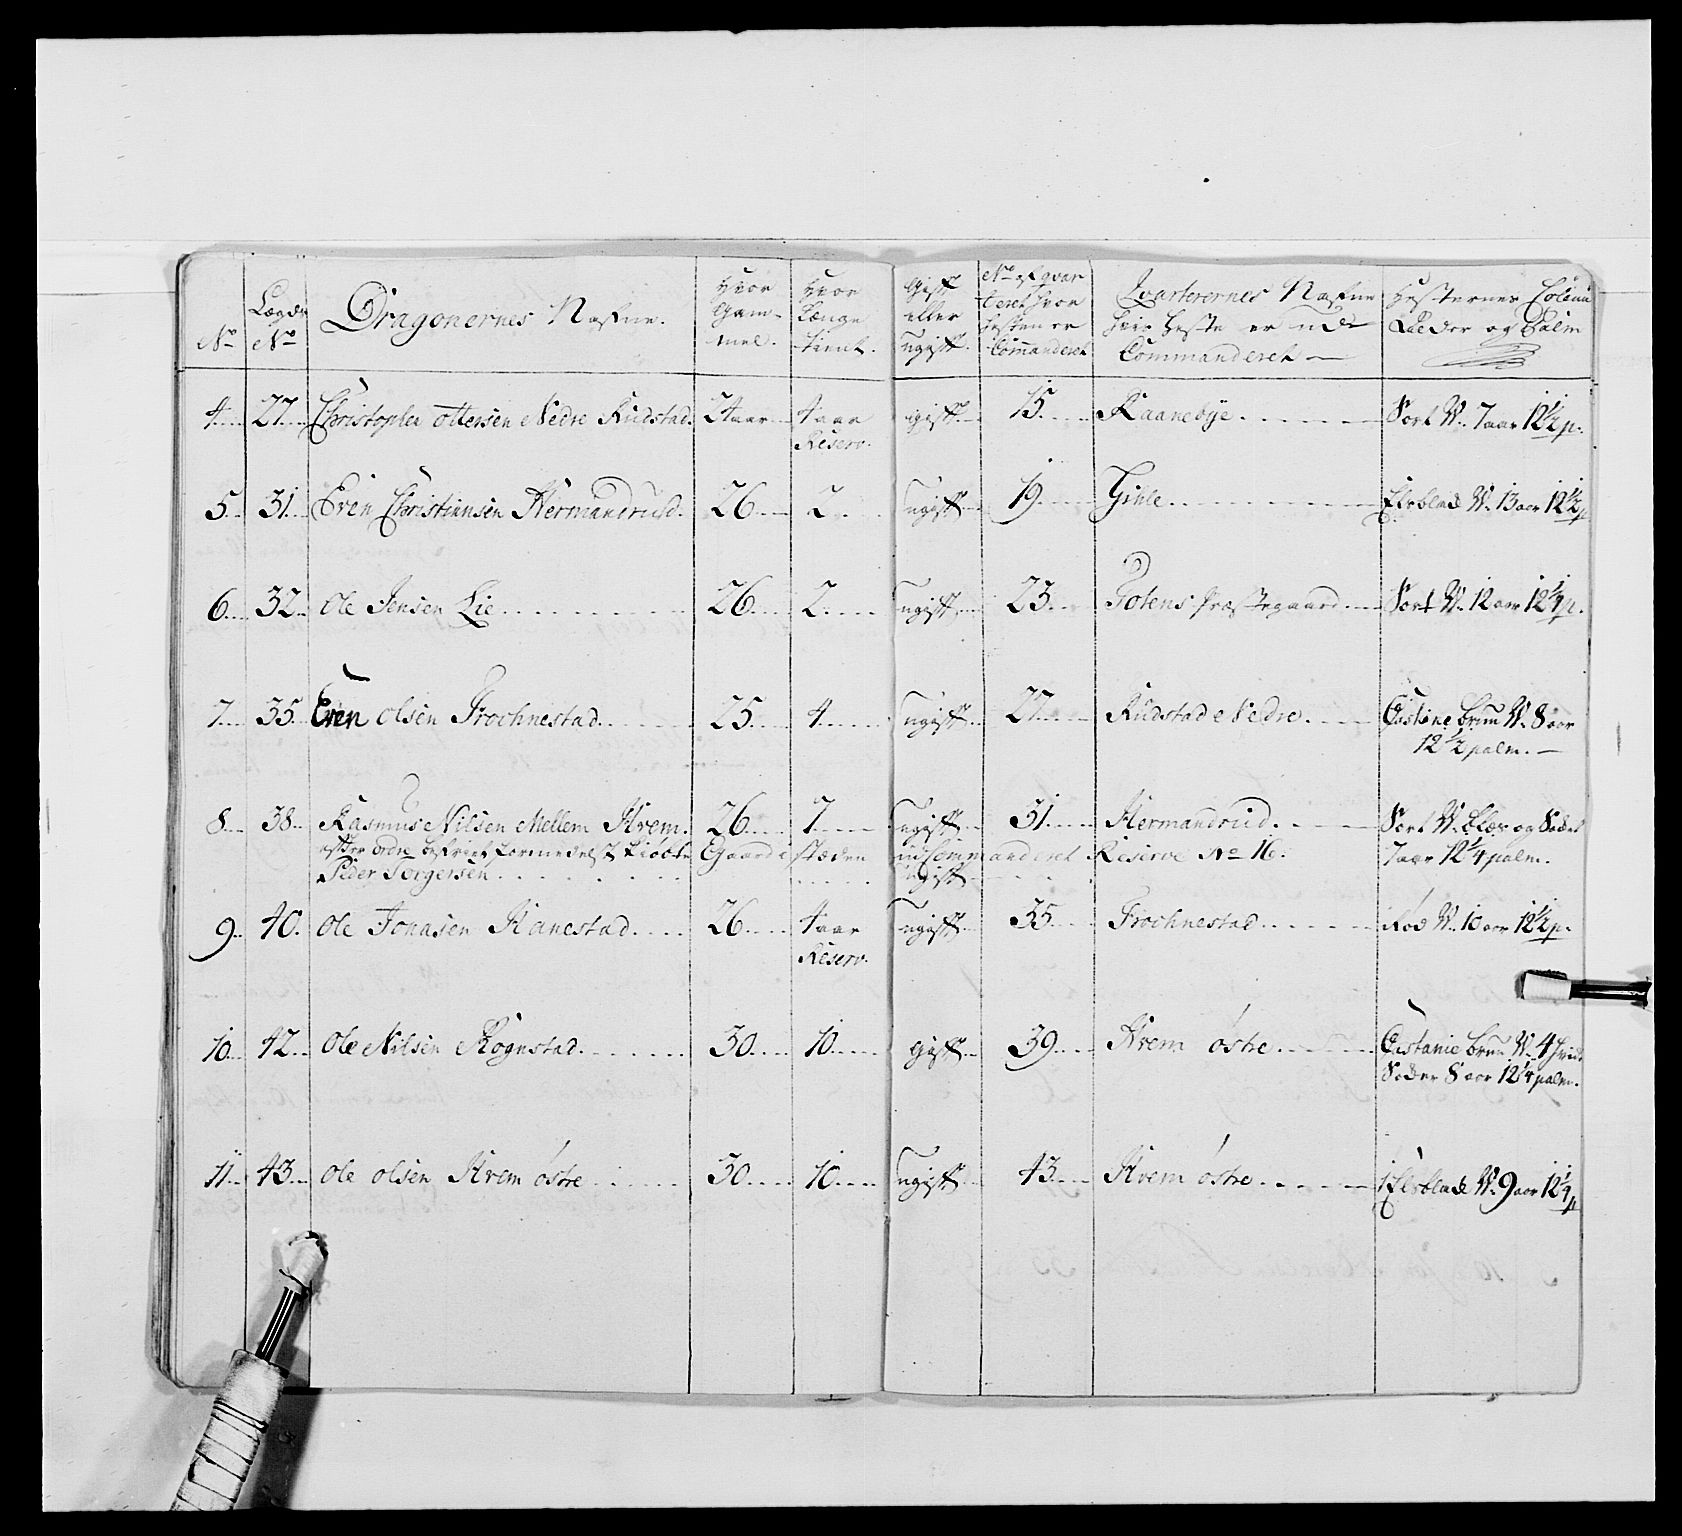 No Lægds No Dragonernes Nafne. Hvor Gammel. Hvor Længe tient. Gift eller ugift. No af qvarteret hvor hesten er Commanderet Qvarterernes Nafne hvis heste er ud Commanderet Hesternes Coleur Alder og Palm
4 27 Christopher Ottersen Nedre Rudstad 24 aar 4 aar gift 15 Kaanebye Sort W. 7 aar 12½ p.
Reserv.
5 31 Even Christiansen Hermandrud 26 2 ugift 19 Gihle W. 13 aar 12½ p
6 32 Ole Jensen Lie 26 2 ugift 23 Totens Præstegaard Sort W. 12 aar 12¼ p.
7 35 Even Olsen Frochnestad 25 4 ugift 27 Rudstad Nedre Castine brun W. 8 aar
12½ palm.
8 38 Rasmus Nilsen Mellem Hrem 26 7 ugift 31 Hermandrud Sort W. Bles og Sødet
efter ordre befriet formedelst kiøbte Gaard i stæden ud Commanderet Reserve No 16. 7 aar 12¼ palm.
Peder Torgersen ugift
9 40 Ole Jonasen Hanestad 26 4 aar ugift 35 Frochnestad Rød W. 10 aar 12½ p.
Reserv.
10 42 Ole Nilsen Rognstad 30 10 gift 39 Hrem østre Castanie brun W. 4 hvide
Søder 8 aar 12¼ palm.
11 43 Ole Olsen Hrem østre 30 10 ugift 43 Hrem østre W. 9 aar 12¼ p